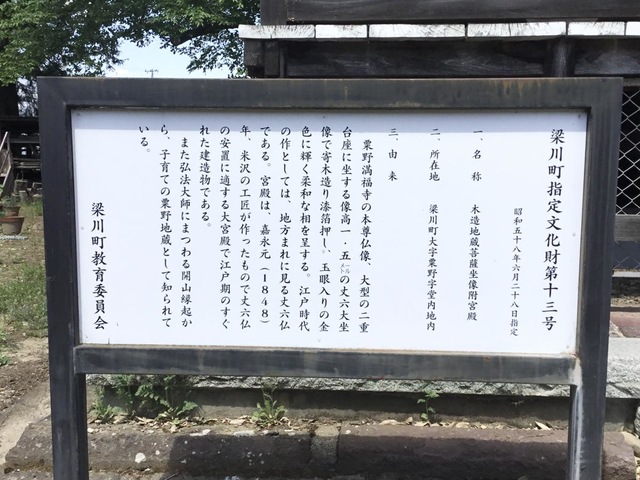 梁川町指定文化財第十三号
昭和五十八年六月二十八日指定
一、名　称　木造地蔵菩薩坐像附宮殿
二、所在地　梁川町大字粟野字堂内地内
三、由　来
粟野満福寺の本尊仏像、大型の二重
台座に坐する像高一・五メートルの丈六大坐
像で寄木造り漆箔押し、玉眼入りの金
色に輝く柔和な相を呈する。江戸時代
の作としては、地方まれに見る丈六仏
である。宮殿は、嘉永元（1848）
年、米沢の工匠が作ったもので丈六仏
の安置に適する大宮殿で江戸期のすぐ
れた建造物である。
また弘法大師にまつわる開山縁起か
ら、子育ての粟野地蔵として知られて
いる。
梁川町教育委員会